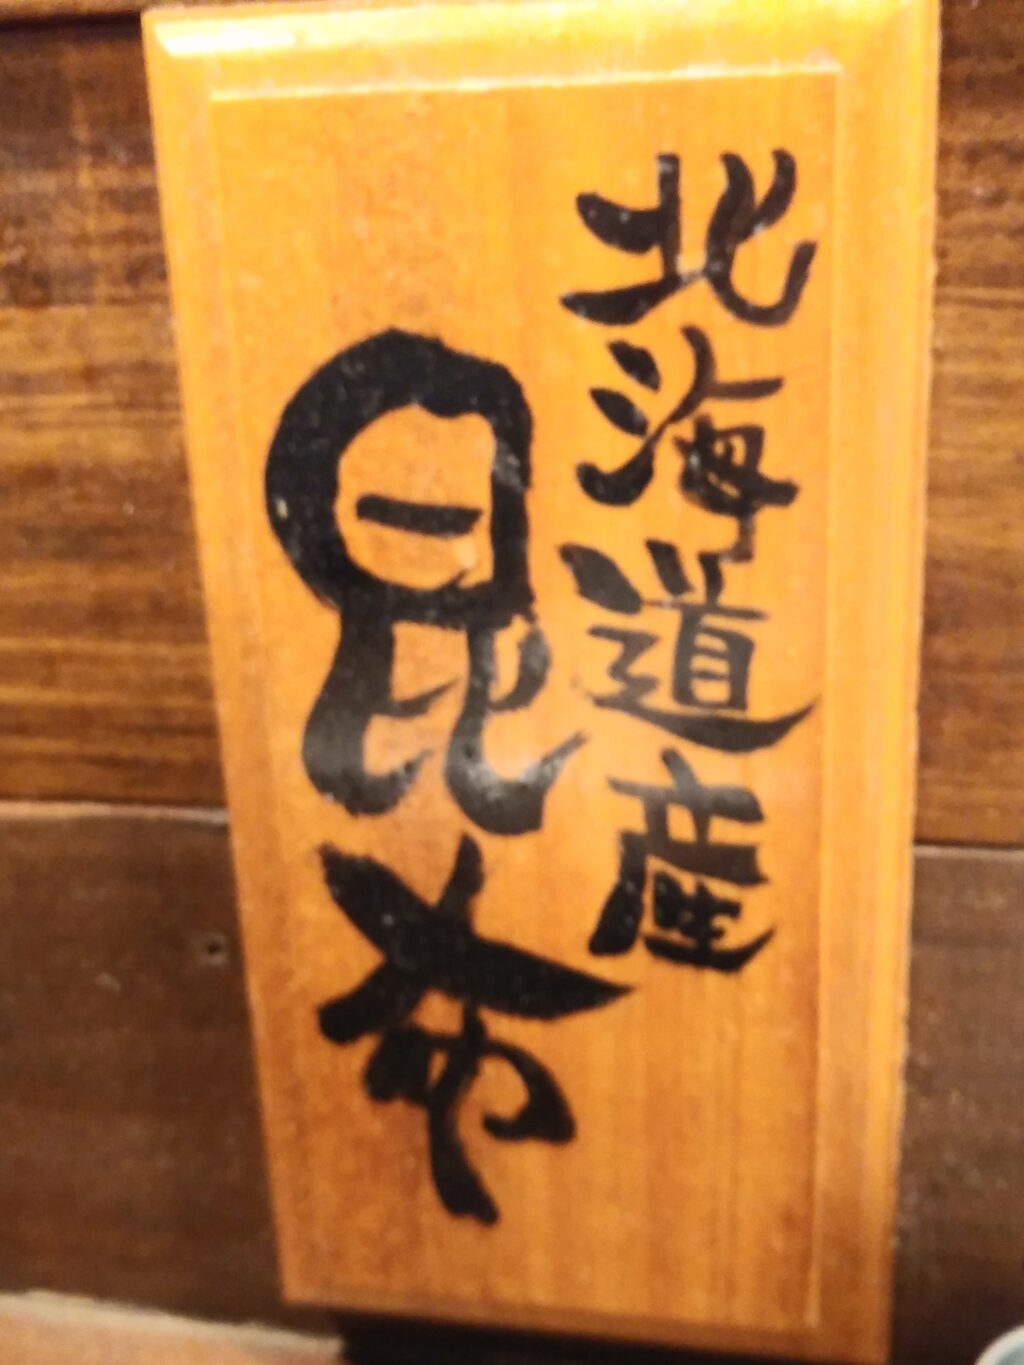 北海道産
昆布